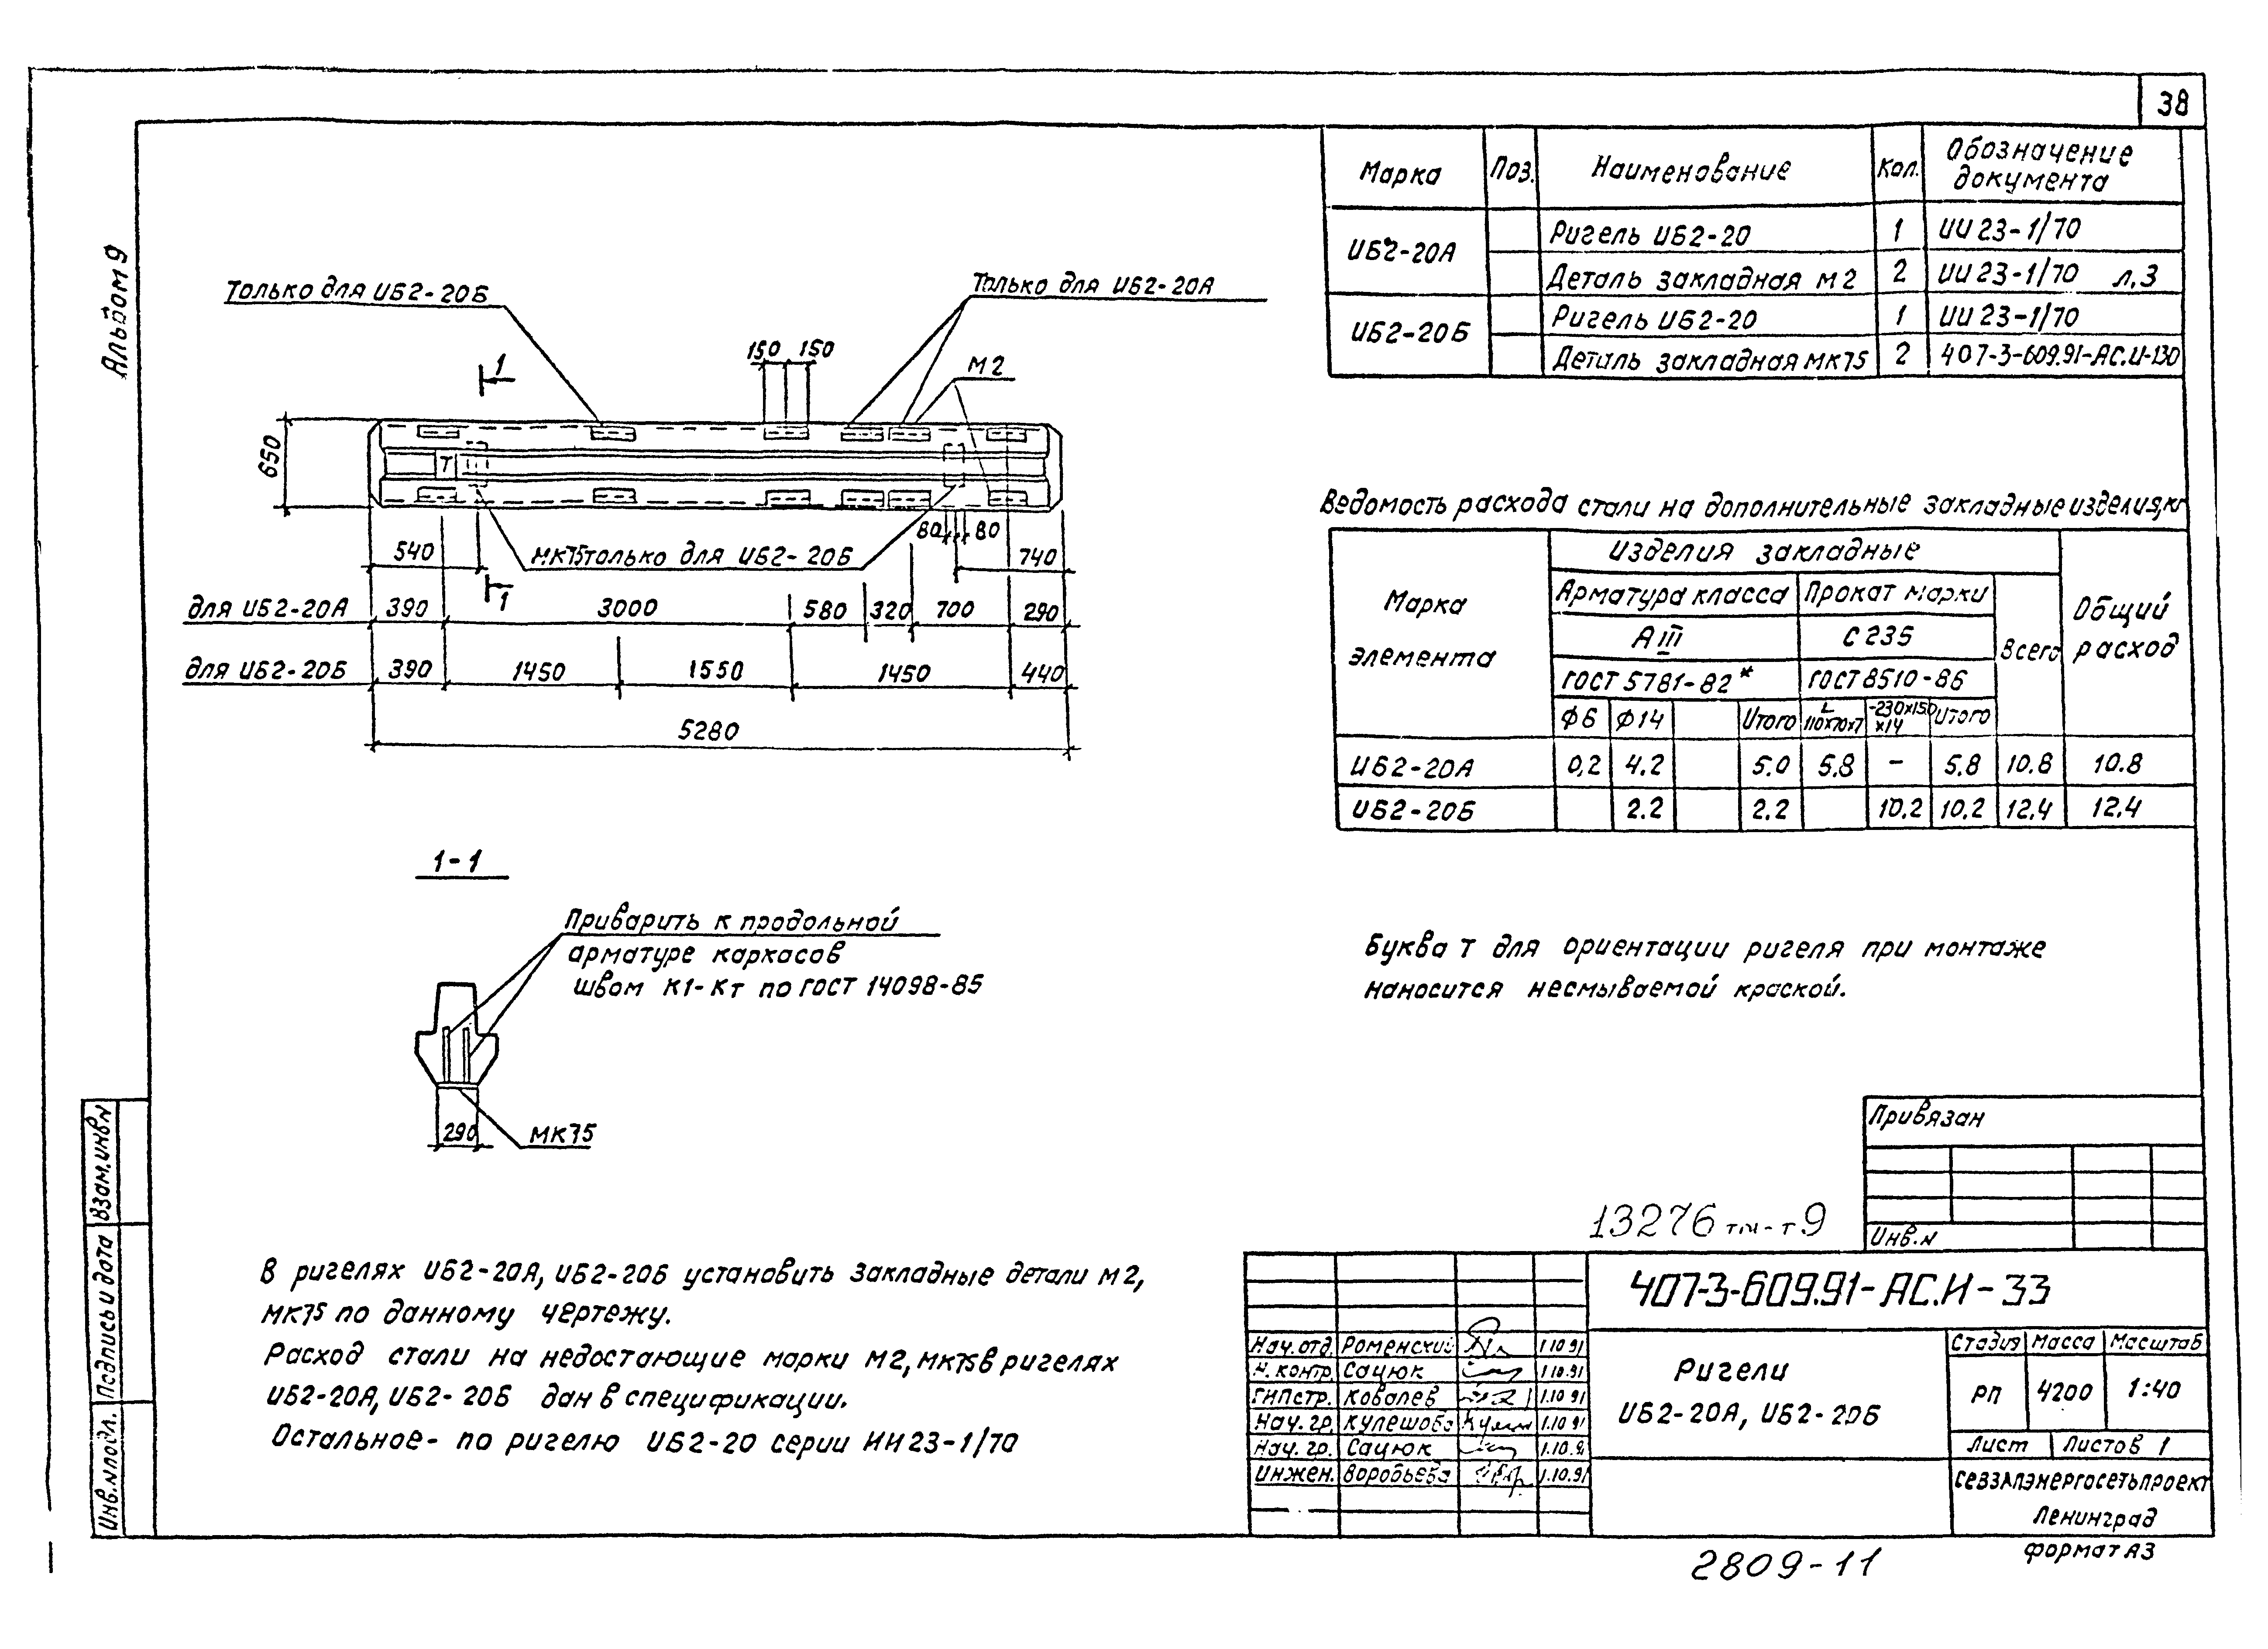 38
Альбом 9
Марка Поз. Наименование Кол. Обозначение документа
ИБ2-20А Ригель ИБ2-20 1 ИИ 23-1/70
Деталь закладная М2 2 ИИ 23-1/70 л.3
ИБ2-20Б Ригель ИБ2-20 1 ИИ 23-1/70
Деталь закладная МК75 2 407-3-609.91-АС.И-130
Только для ИБ2-20Б
Только для ИБ2-20А
150 150
М2
1
650
Т
80 80
540
МК75 только для ИБ2-20Б
740
1
для ИБ2-20А 390 3000 580 320 700 290
для ИБ2-20Б 390 1450 1550 1450 440
5280
Ведомость расхода стали на дополнительные закладные изделия, кг
Марка элемента Изделия закладные Общий расход
Арматура класса Прокат марки Всего
А III С 235
ГОСТ 5781-82* ГОСТ 8510-86
Ф6 Ф14 Итого L 110х70х7 -230х150х14 Итого
ИБ2-20А 0,2 4.2 5.0 5,8 - 5.8 10.8 10.8
ИБ2-20Б 2.2 2.2 10.2 10,2 12,4 12,4
1-1
Приварить к продольной
арматуре каркасов
швом К1-Кт по ГОСТ 14098-85
290
МК75
Буква Т для ориентации ригеля при монтаже
наносится несмываемой краской.
В ригелях ИБ2-20А, ИБ2-20Б установить закладные детали М2,
МК75 по данному чертежу.
Расход стали на недостающие марки М2, МК75 в ригелях
ИБ2-20А, ИБ2-20Б дан в спецификации.
Остальное - по ригелю ИБ2-20 серии ИИ 23-1/70
Привязан
Инв.N
13276 тм-т 9
407-3-609.91-АС.И-33
Нач. отд. Роменский 1.10 91
Н. контр. Сацюк 1.10.91
ГИПстр. Ковалев 1.10 91
Нач. гр. Кулешова 1.10 91
Нач. гр. Сацюк 1.10.9
Инжен. Воробьева 1.10.91
Ригели
ИБ2-20А, ИБ2-20Б
Стадия Масса Масштаб
РП 4200 1:40
Лист Листов 1
СЕВЗАПЭНЕРГОСЕТЬПРОЕКТ
Ленинград
формат А3
2809-11
Взам.инв.N
Подпись и дата
Инв.N подл.